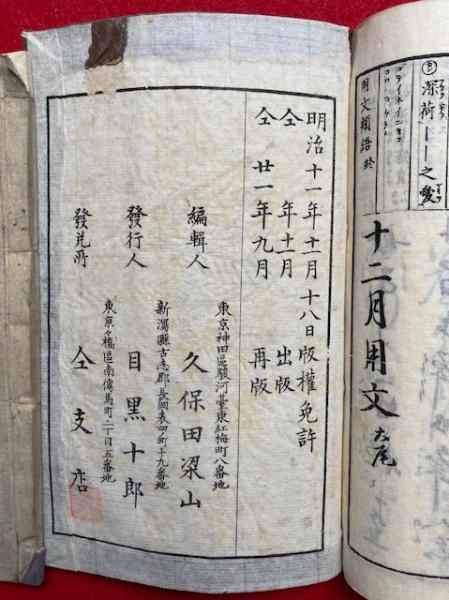 深荷｜｜之愛
用文類語終
十二月用文 大尾
明治十一年十二月十八日版權免許
仝 年十二月 出版
仝 廿一年九月 再版
東京神田區駿河臺東紅梅町八番地
編輯人 久保田梁山
新潟縣古志郡長岡表四ノ町十九番地
發行人 目黒十郎
東京々橋區南傳馬町二丁目五番地
發兌所 仝支店